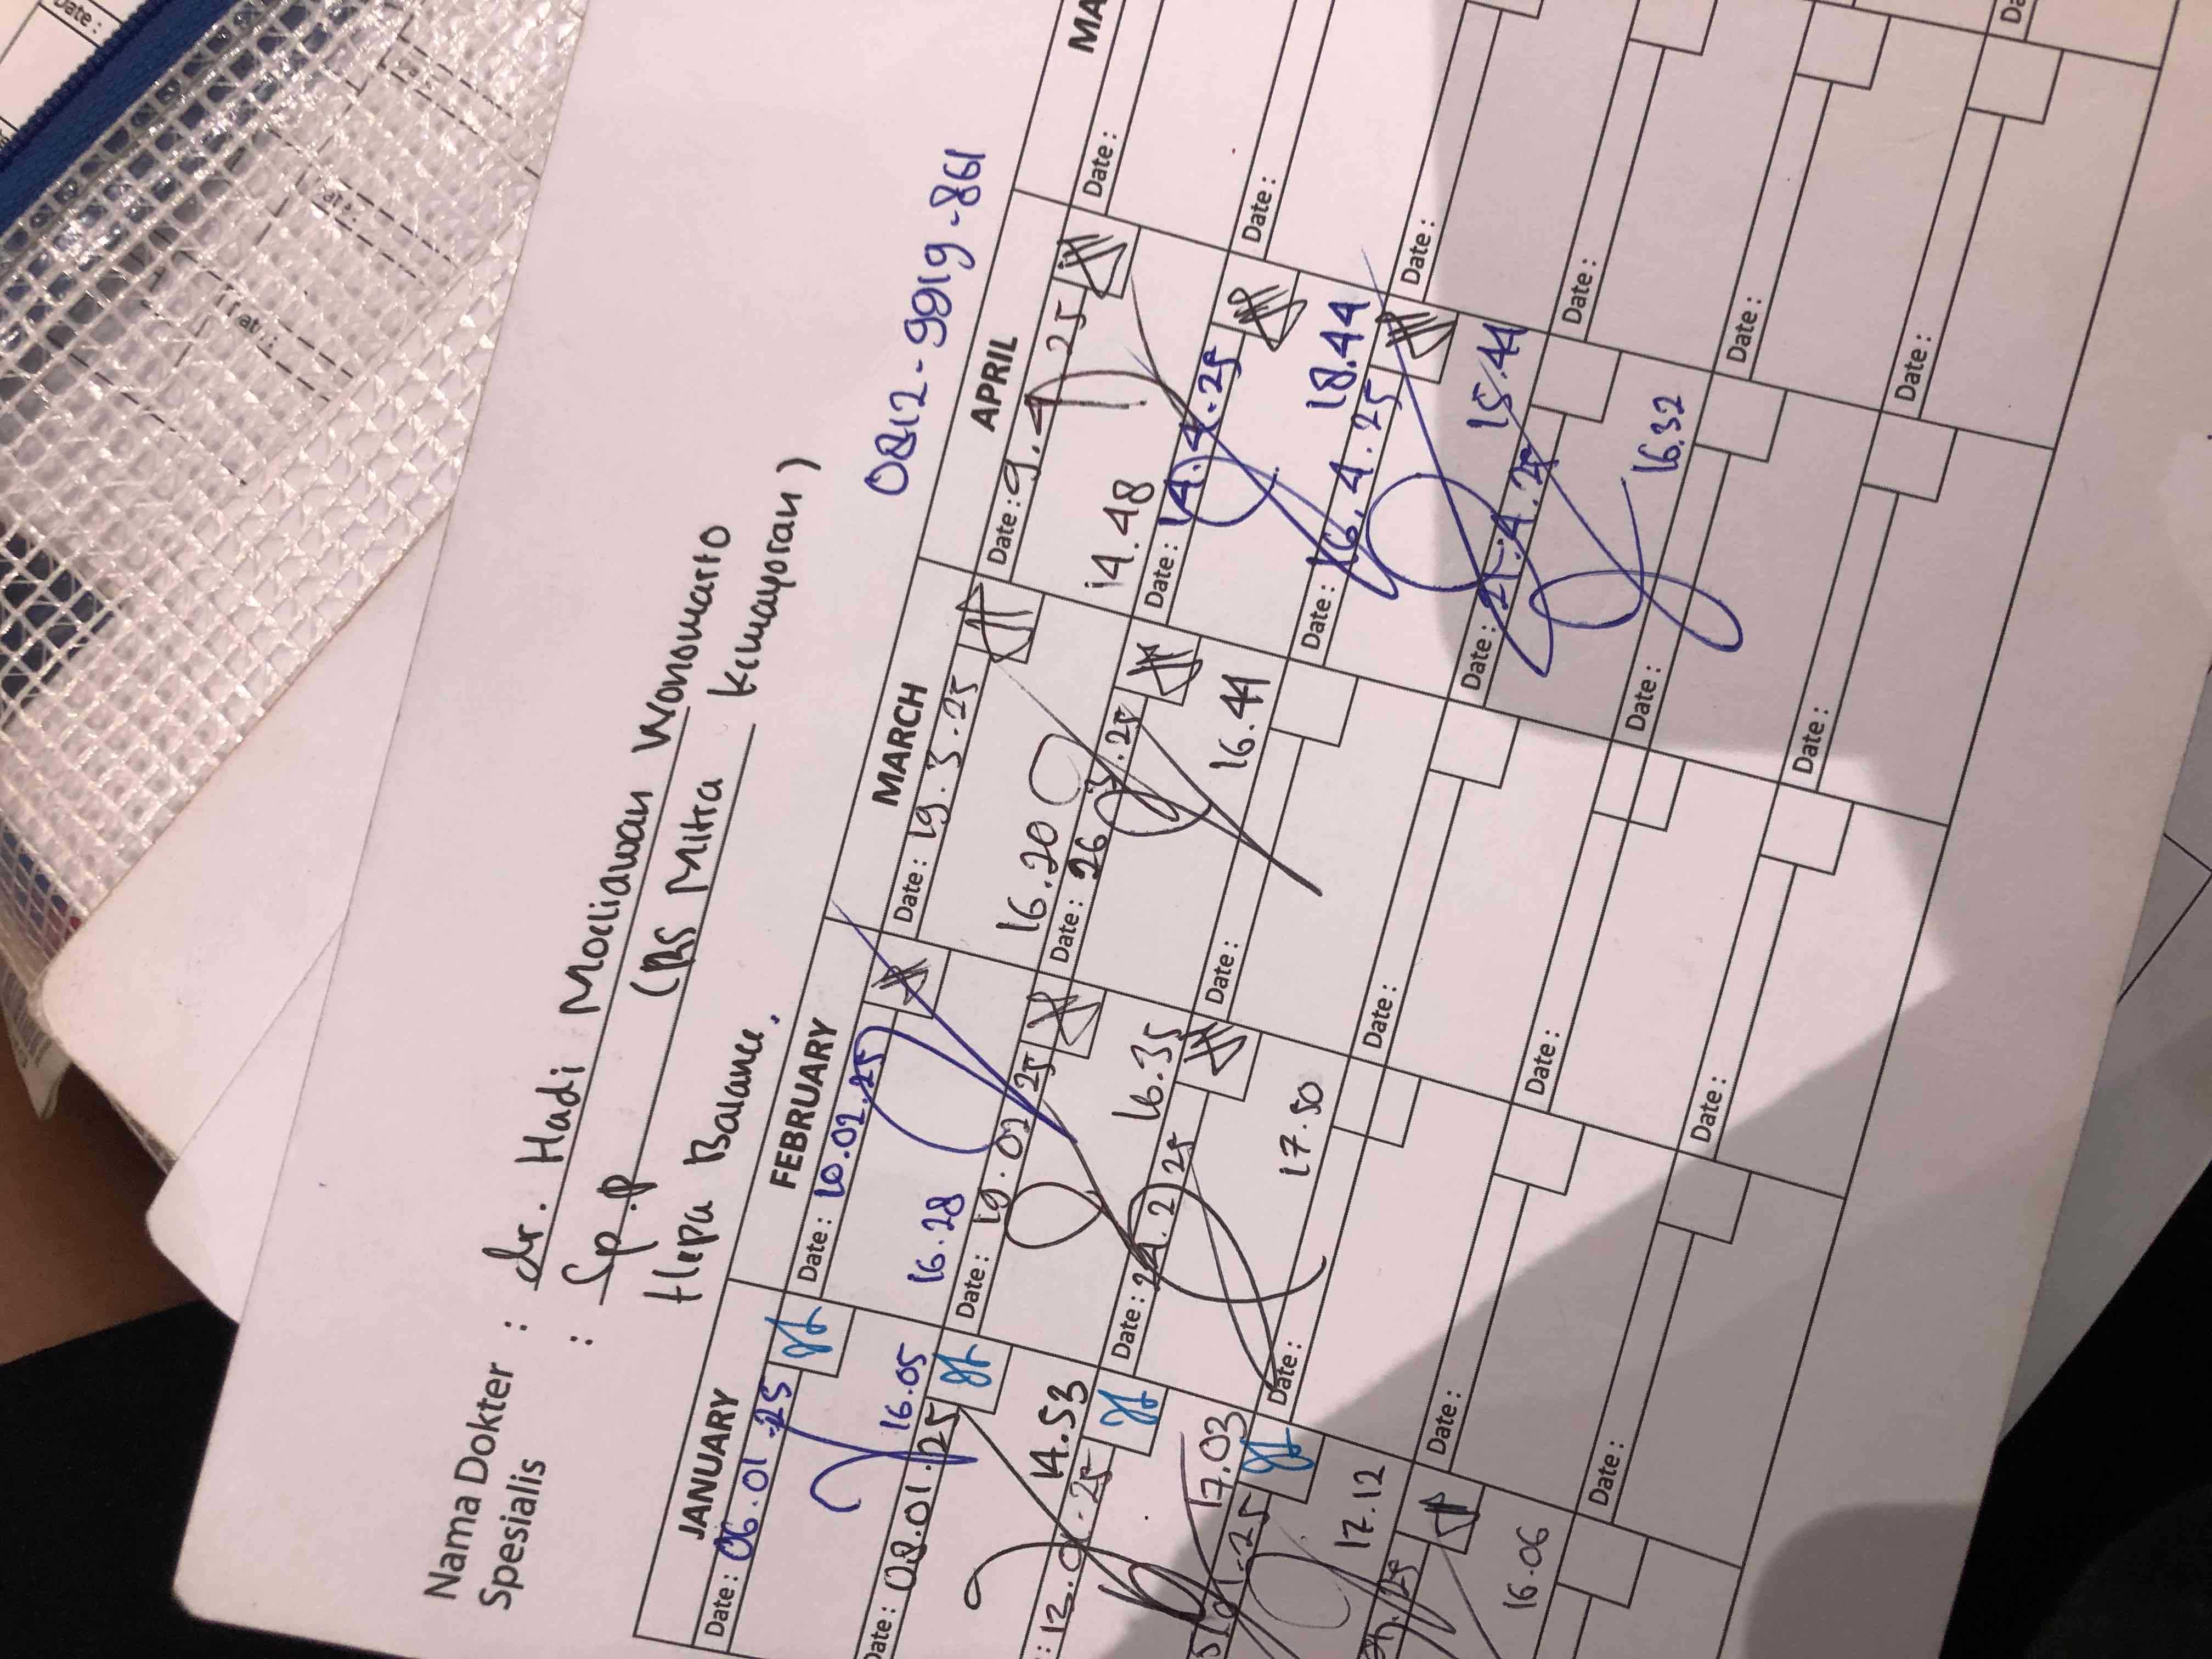 Nama Dokter : dr. Hadi Mocliawan Wonomarto
Spesialis : Sp.P (RS Mitra Kemayoran)
Hepa Balance,
0812-9919-861
JANUARY FEBRUARY MARCH APRIL MA
Date: 06.01.25 Date: 10.02.25 Date: 19.3.25 Date: 9.4.25 Date:
16.05 16.28 16.20 14.48
Date: 08.01.25 Date: 19.02.25 Date: 26.3.25 Date: 14.4.25 Date:
14.53 16.35 16.41 18.44
: 12.01.25 Date: 24.2.25 Date: Date: 16.4.25 Date:
17.03 17.50 15.44
.01.25 Date: Date: Date: 21.4.25 Date:
17.12 16.32
.25 Date: Date: Date: Date:
16.06
Date: Date: Date: Date:
Date: